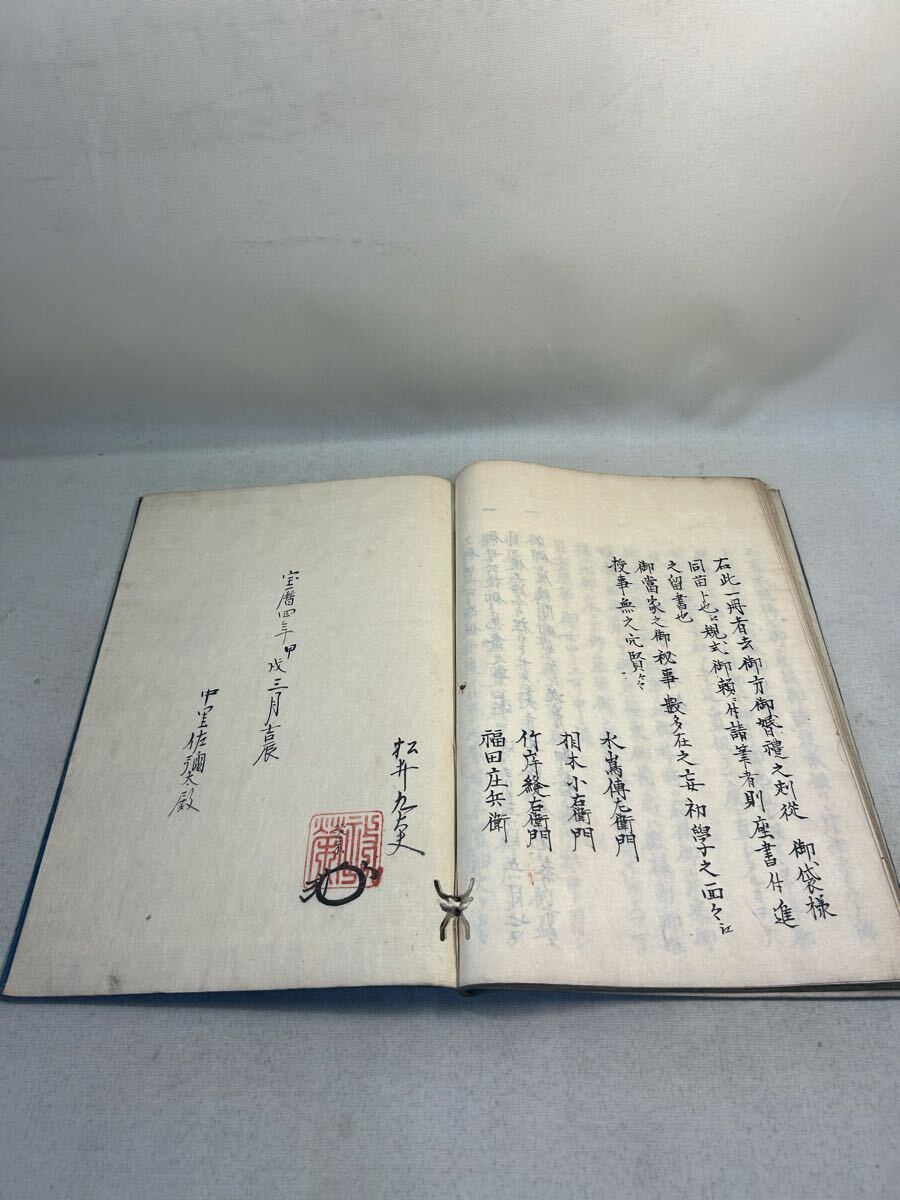 右此一冊者去御方御婚禮之刻從 御袋様
同苗卜也江規式御頼ニ付請筆者則座書付進
之留書也
御當家之御秘事數多在之妄初學子之面々江
授事無之穴賢々々
水嶌傳左衛門
相木小右衛門
竹岸縫右衛門
福田庄兵衛
松井
宝暦四年甲戌三月吉辰
中里佐彌太殿